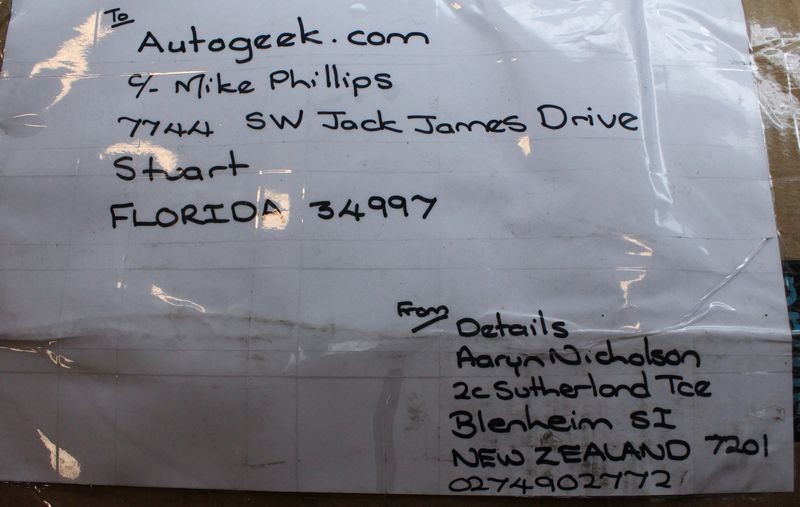 To
Autogeek.com
c/- Mike Phillips
7744 SW Jack James Drive
Stuart
FLORIDA 34997
From
Details
Aaryn Nicholson
2c Sutherland Tce
Blenheim SI
NEW ZEALAND 7201
0274902772